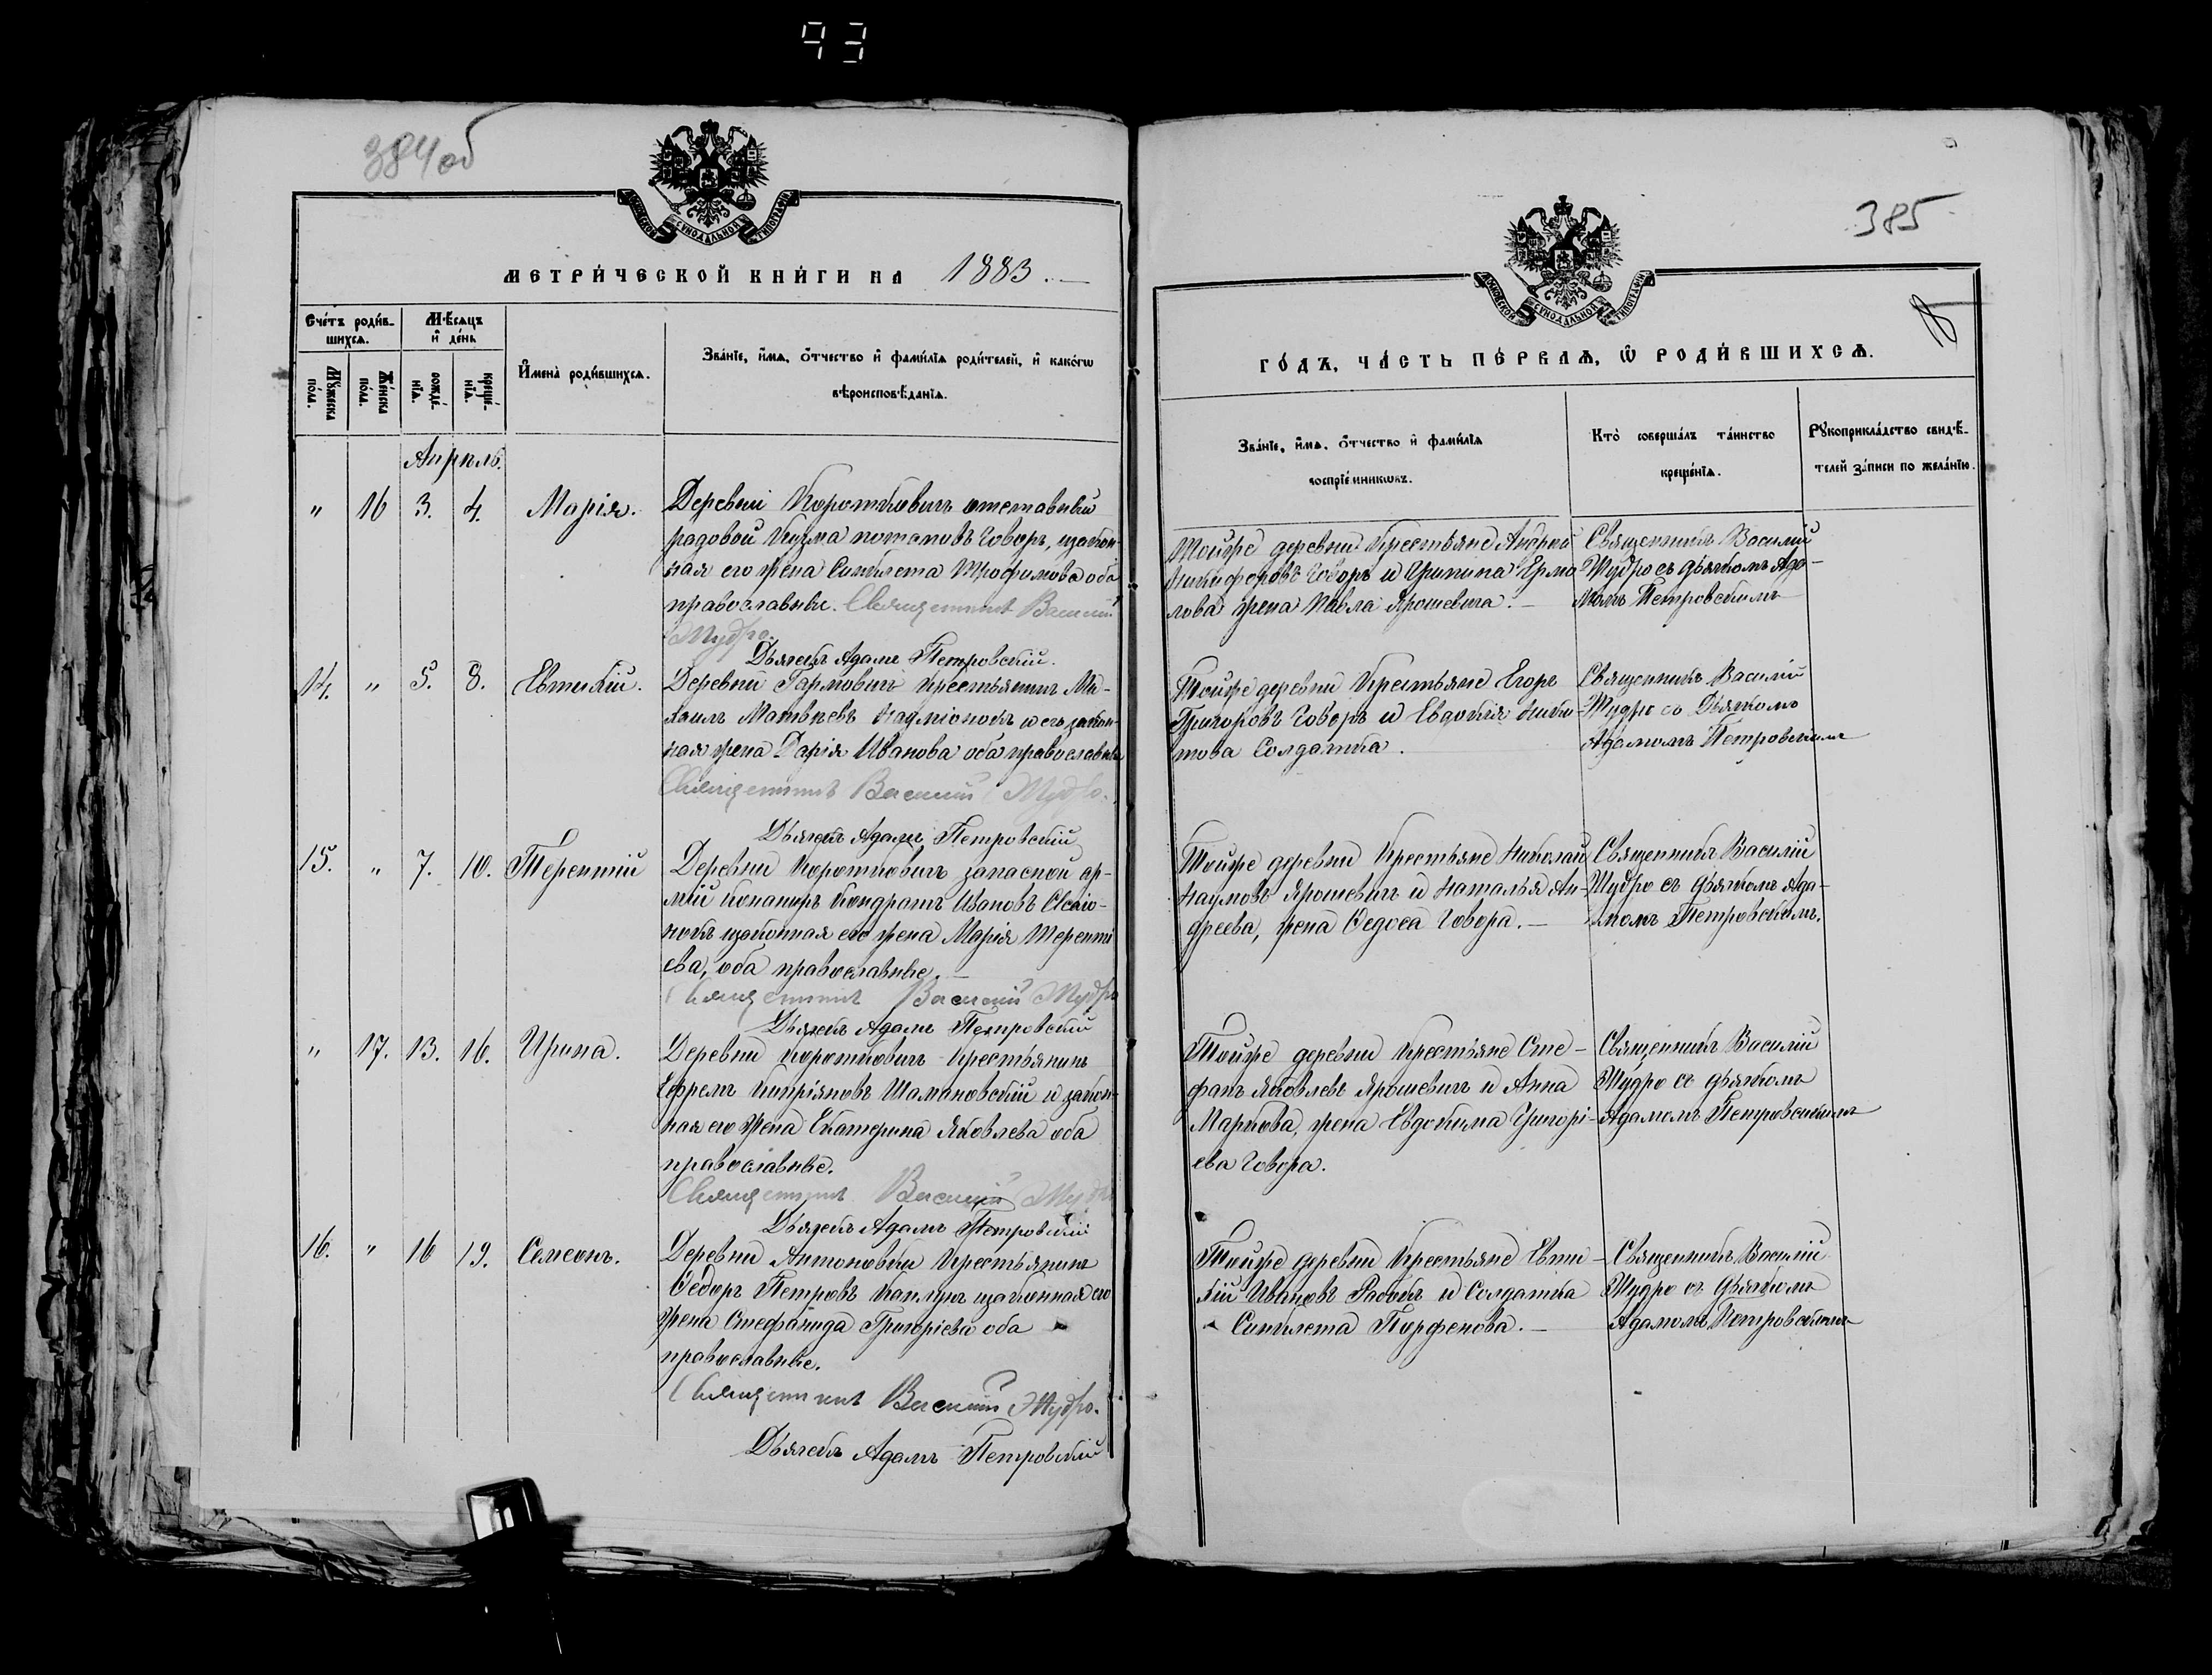 93
384об
МОСКОВСКОЙ СѴНОДАЛЬНОЙ ТИПОГРАФІИ
МЕТРИ́ЧЕСКОЙ КНИ́ГИ НА 1883.
Сче́тъ роди́в-
шихся.
М́ѣсяцъ
и҆ де́нь
Му́жеска
по́ла.
Же́нска
по́ла.
рожде́-
нїѧ.
креще́-
нїѧ.
И҆мена̀ роди́вшихся.
Зва́нїе, и҆́мѧ, ѻ҆́тчество и҆ фами́лїѧ роди́телей, и҆ како́гѡ
вѣроисповѣ́данїѧ.
Апрѣль.
" 16 3. 4. Марія.
Деревни Коротковичъ отставный
рядовой Кузма Потаповъ Говоръ, изакон-
ная его жена Синклета Трофимова оба
православные. Священникъ Василій
Мудро.
Дьячекъ Адамъ Петровскій.
14. " 5. 8. Евтихій.
Деревни Гармовичъ крестьянинъ Ми-
хаилъ Матвѣевъ и его закон-
ная жена Дарія Иванова оба православные
Священникъ Василій Мудро.
Дьячекъ Адамъ Петровскій
15. " 7. 10. Терентій
Деревни Коротковичъ запасной ар-
міи Кондратъ Ивановъ
изаконная его жена Марія Теренті
ева, оба православные.
Священникъ Василій Мудро
Дьячекъ Адамъ Петровскій
" 17. 13. 16. Ирина.
Деревни Коротковичъ Крестьянинъ
Ефремъ Кипріяновъ Шамановскій и закон-
ная его жена Екатерина Яковлева оба
православные.
Священникъ Василій Мудро
Дьячекъ Адамъ Петровскій
16. " 16 19. Симеонъ.
Деревни Антоновки Крестьянинъ
Ѳедоръ Петровъ Каплунъ изаконная его
жена Стефанида Григоріева оба
православные.
Священникъ Василій Мудро.
Дьячекъ Адамъ Петровскій
385
8
МОСКОВСКОЙ СѴНОДАЛЬНОЙ ТИПОГРАФІИ
ГО́ДЪ, ЧА́СТЬ ПЕ́РВАѦ, Ѡ҆ РОДИ́ВШИХСѦ.
Зва́нїе, и҆́мѧ, ѻ҆́тчество и҆ фами́лїѧ
воспрїе́мниковъ.
Кто̀ соверша́лъ та́инство
креще́нїѧ.
Рꙋкоприкла́дство свидѣ́-
телей за́писи по жела́нїю.
Тойже деревни Крестьяне Андрей
Никифоровъ Говоръ и Гринина Ермо-
лова жена Павла Ярошевича.
Священникъ Василій
Мудро съ дьячкомъ Ада-
момъ Петровскимъ
Тойже деревни Крестьяне Егоръ
Григоровъ Говоръ и Евдокія Ники-
това Солдатка.
Священникъ Василій
Мудро со Дьячкомъ
Адамомъ Петровскимъ
Тойже деревни Крестьяне Николай
Наумовъ Ярошевичъ и Наталья Ан-
дреева, жена Ѳедоса Говора.
Священникъ Василій
Мудро съ дьячкомъ Ада-
момъ Петровскимъ.
Тойже деревни Крестьяне Сте-
фанъ Яковлевъ Ярошевичъ и Анна
Маркова, жена Евдокима Григорі-
ева Говора.
Священникъ Василій
Мудро съ дьячкомъ
Адамомъ Петровскимъ
Тойже деревни Крестьяне Евти-
хій Ивановъ Рабокъ и Солдатка
Синклета Парфенова.
Священникъ Василій
Мудро съ дьячкомъ
Адамомъ Петровскимъ